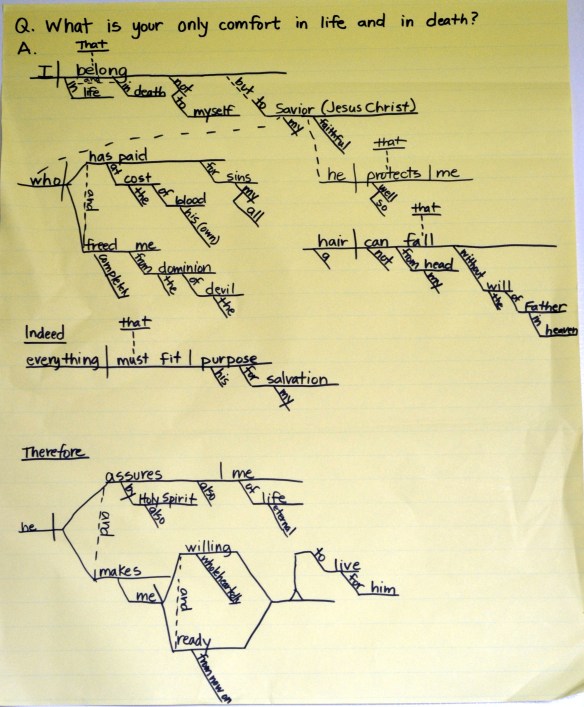 Q. What is your only comfort in life and in death?
A.
That
I belong
and
in life in death not to myself but to Savior (Jesus Christ)
my faithful
who has paid for sins
my all
at cost
the of blood
his (own)
and
freed me
completely from dominion
the of devil
the
that
he protects me
well
so
that
hair can fall
a not from head
my
without will
the of Father
in heaven
Indeed
that
everything must fit purpose
his for salvation
my
Therefore
he
assures me
by Holy Spirit
also
also
of life
eternal
and
makes
me
willing
wholeheartedly
and
ready
from now on
to live
for him